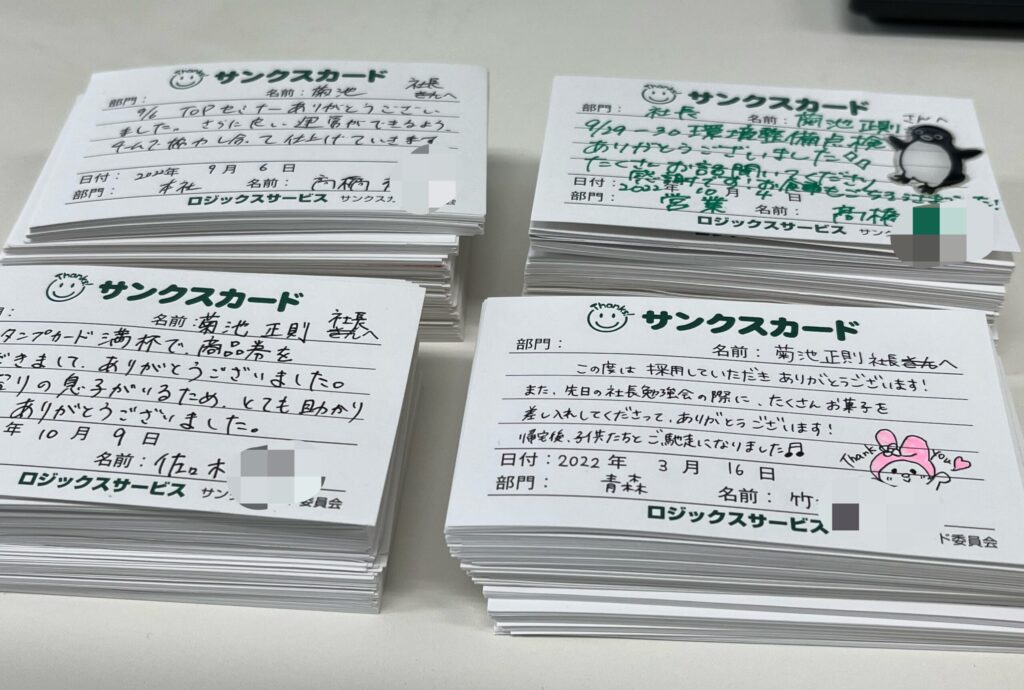 Thanks
サンクスカード
部門： 名前：菊池 社長へ
9/6 TOPセミナーありがとうござい
ました。さらに良い運営ができるよう、
チームで協力し合って仕上げていきます
日付：2022年 9月 6日
部門： 本社 名前： 高橋
ロジックスサービス サンクスカ 会
サンクスカード
部門： 社長 名前：菊池 正則 さんへ
9/29-30環境整備点検
ありがとうございました
たくさんお話聞いてくださり
日付：2022年10月4日
部門： 営業 名前 高橋
ロジックスサービス サンク
Thanks
サンクスカード
名前：菊池 正則 社長へ
タンプカード満杯で、商品券を
だきまして、ありがとうございました。
の息子がいるため、とても助かり
ありがとうございました。
年 10月 9日
名前：佐々木
ロジックスサービス サン 委員会
Thanks
サンクスカード
部門： 名前：菊池 正則 社長さんへ
この度は 採用していただき ありがとうございます！
また、先日の社長勉強会の際に、たくさんお菓子を
差し入れしてくださって、ありがとうございます！
帰宅後、子供たちと ご馳走になりました♫
Thank You
日付：2022年 3月 16日
部門： 青森 名前： 竹
ロジックスサービス ド委員会